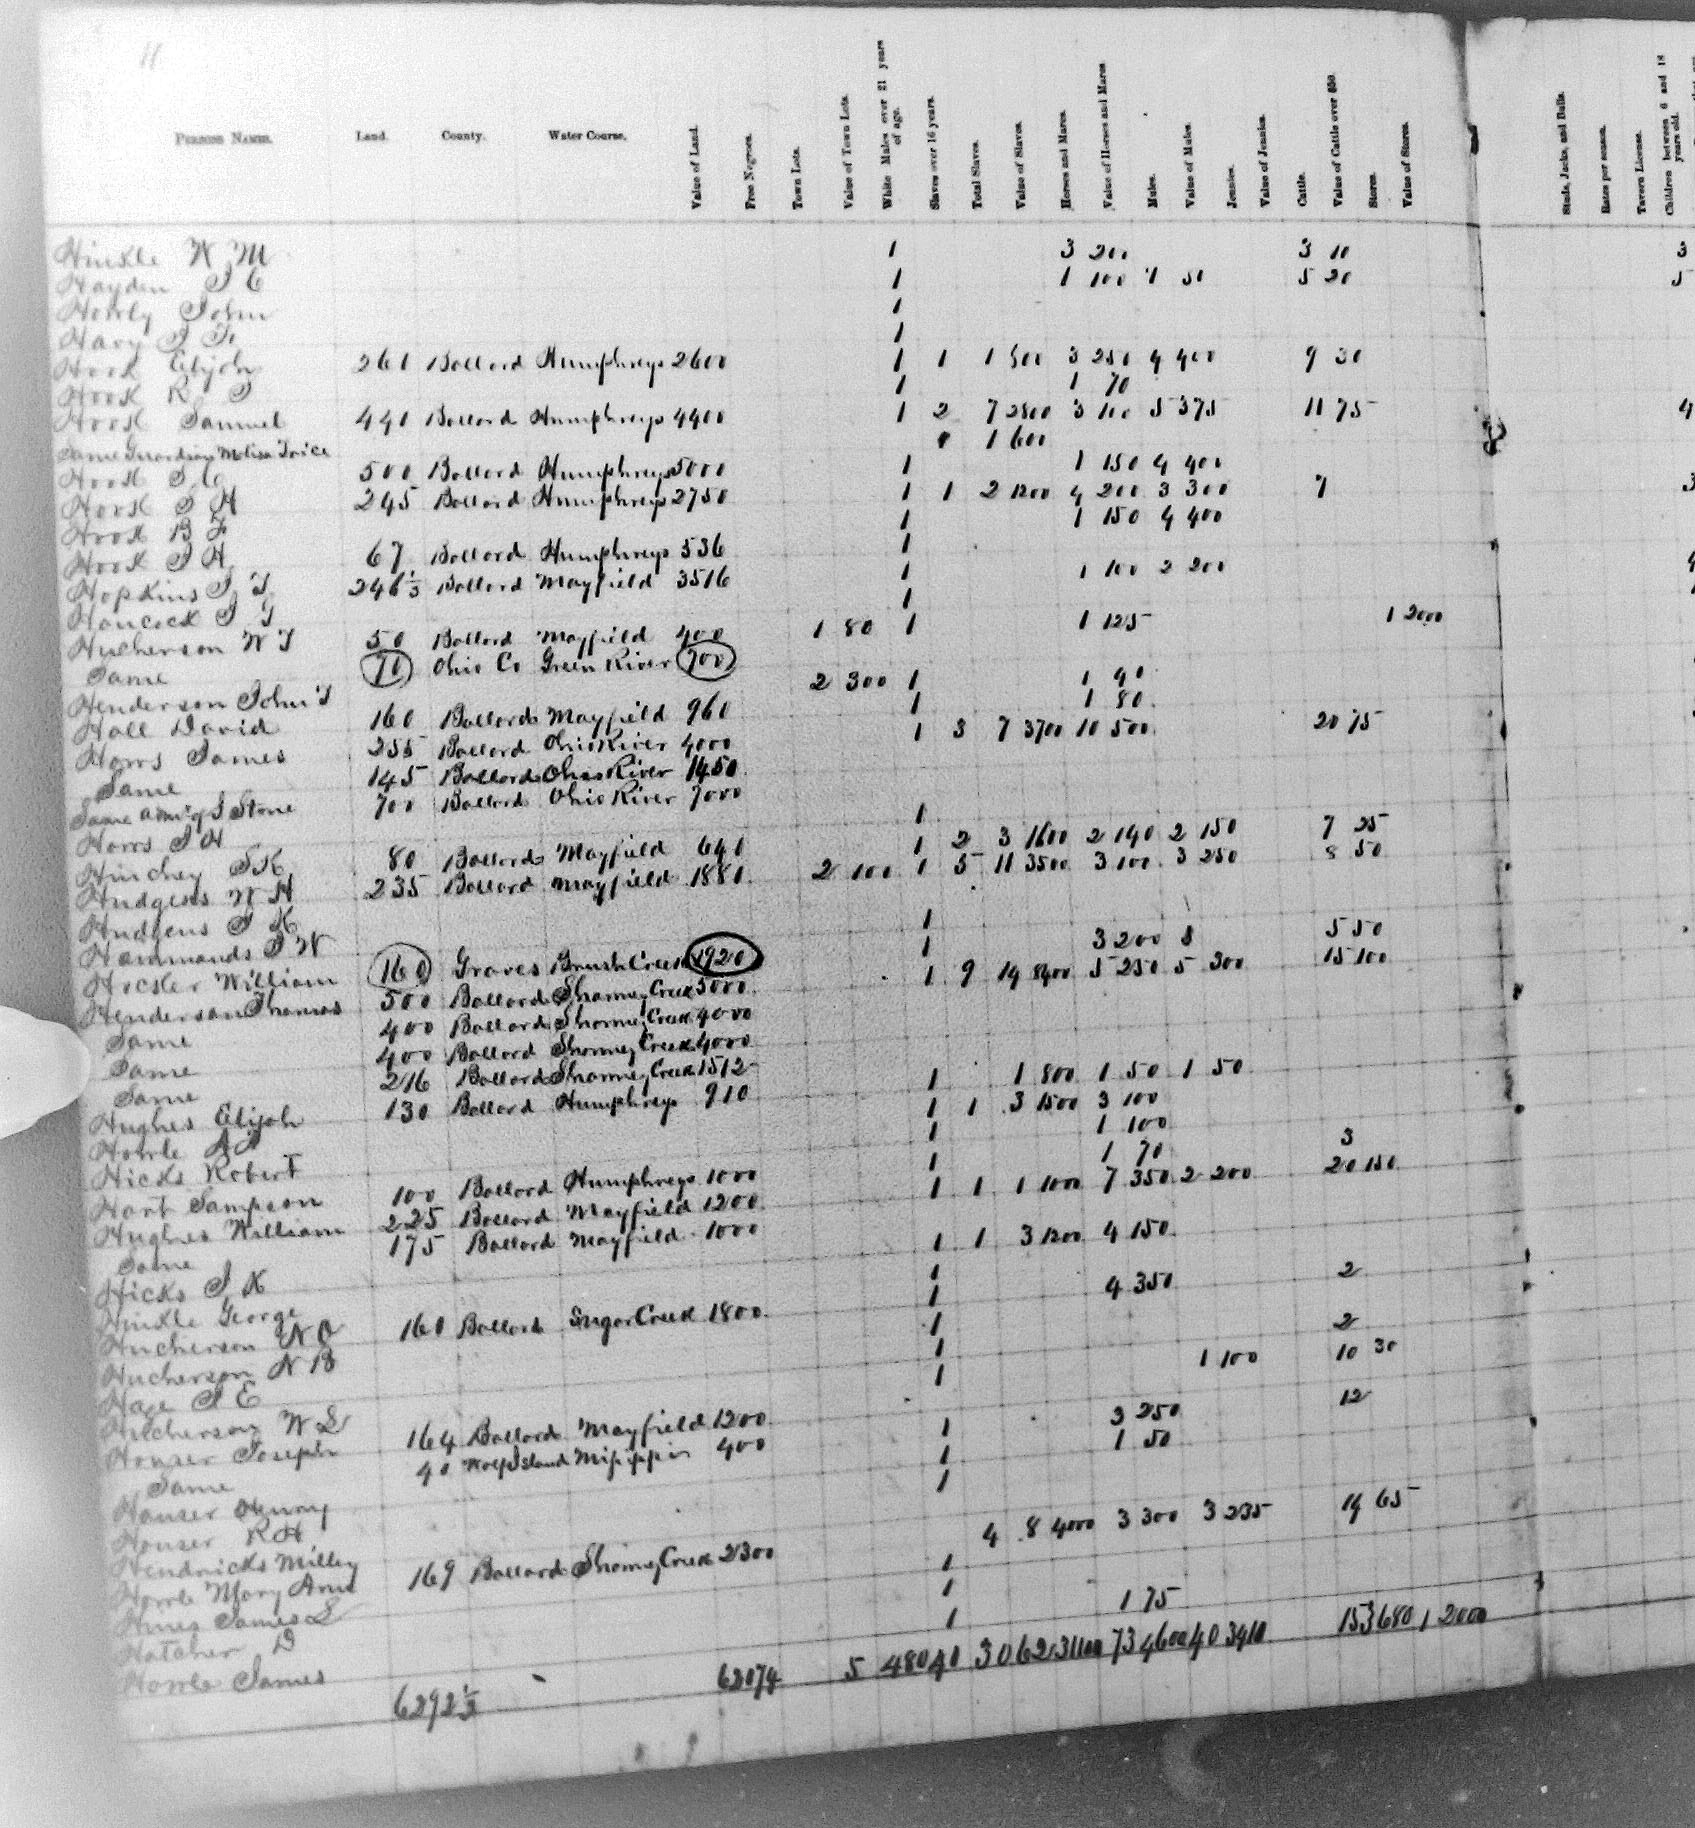 11
PERSONS NAMES. Land. County. Water Course. Value of Land. Free Negroes. Town Lots. Value of Town Lots. White Males over 21 years of age. Slaves over 16 years. Total Slaves. Value of Slaves. Horses and Mares. Value of Horses and Mares Mules. Value of Mules. Jennies. Value of Jennies. Cattle. Value of Cattle over $50. Stores. Value of Stores. Studs, Jacks, and Bulls. Rates per season. Tavern License. Children between 6 and 18 years old.
Hinkle W M 1 3 200 3 10 3
Hayden J C 1 1 100 1 50 5 20 5
Howly John 1
Hary J F 1
Hook Elijah 261 Ballard Humphreys 2600 1 1 1 500 3 250 4 400 9 30
Hook R J 1 1 70
Hook Samuel 440 Ballard Humphreys 4400 1 2 7 2800 3 100 5 375 11 75 4
Same Guardian Melisa Trice 1 600
Hook J C 500 Ballard Humphreys 5000 1 1 150 4 400
Hook J H 245 Ballard Humphreys 2750 1 1 2 1200 4 200 3 300 7 3
Hook B F 1 1 150 4 400
Hook J H 67 Ballard Humphreys 536 1
Hopkins J T 246 1/3 Ballard Mayfield 3516 1 1 100 2 200
Hancock J G 1
Hucherson W T 50 Ballard Mayfield 400 1 80 1 1 125 1 2000
Same 70 Ohio Co Green River 700
Henderson John T 2 300 1 1 40
Hall David 160 Ballard Mayfield 960 1 1 80
Horrs James 255 Ballard Ohio River 4000 1 3 7 3700 10 500 20 75
Same 145 Ballard Ohio River 1450
Same admr of J Stone 700 Ballard Ohio River 7000
Horrs J H 1
Hinchey S K 80 Ballard Mayfield 640 1 2 3 1600 2 140 2 150 7 25
Hudgens W H 235 Ballard Mayfield 1880 2 100 1 5 11 3500 3 100 3 250 8 50
Hudgens J K 1
Hammonds J W 1 3 200 5 50
Hocker William 160 Graves Brush Creek 1920 1 9 14 8400 5 250 5 300 15 100
Henderson Thomas 500 Ballard Shawney Creek 5000
Same 400 Ballard Shawney Creek 4000
Same 400 Ballard Shawney Creek 4000
Same 216 Ballard Shawney Creek 1512
Hughes Elijah 130 Ballard Humphreys 910 1 1 800 1 50 1 50
Howle A A 1 1 3 1500 3 100
Hicks Robert 1 1 100
Hart Sampson 100 Ballard Humphreys 1000 1 1 70 3
Hughes William 225 Ballard Mayfield 1200 1 1 1 1000 7 350 2 200 20 150
Same 175 Ballard Mayfield 1000
Hicks J K 1 1 3 1200 4 150
Hinkle George 1
Hucherson 160 Ballard Sugar Creek 1800 1 4 350 2
Hucherson N B 1
Hage J E 1 2
Hucherson W L 1 1 100 10 30
Houser Joseph 164 Ballard Mayfield 1200 3 250 12
Same 40 Wolf Island Mississippi 400
Houser Henry 1 1 50
Houser R H 1
Hendricks Milley 1
Howle Mary Ann 169 Ballard Shawney Creek 2300 4 8 4000 3 300 3 235 14 65
Hines James L 1
Hatcher D 1
Howle James 1 1 75
6292 1/3 62074 5 480 40 30 62 31100 73 4600 40 3410 153 680 1 2000